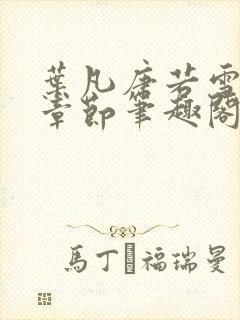 葉凡唐若雪
章節筆趣閣
馬丁·福瑞曼